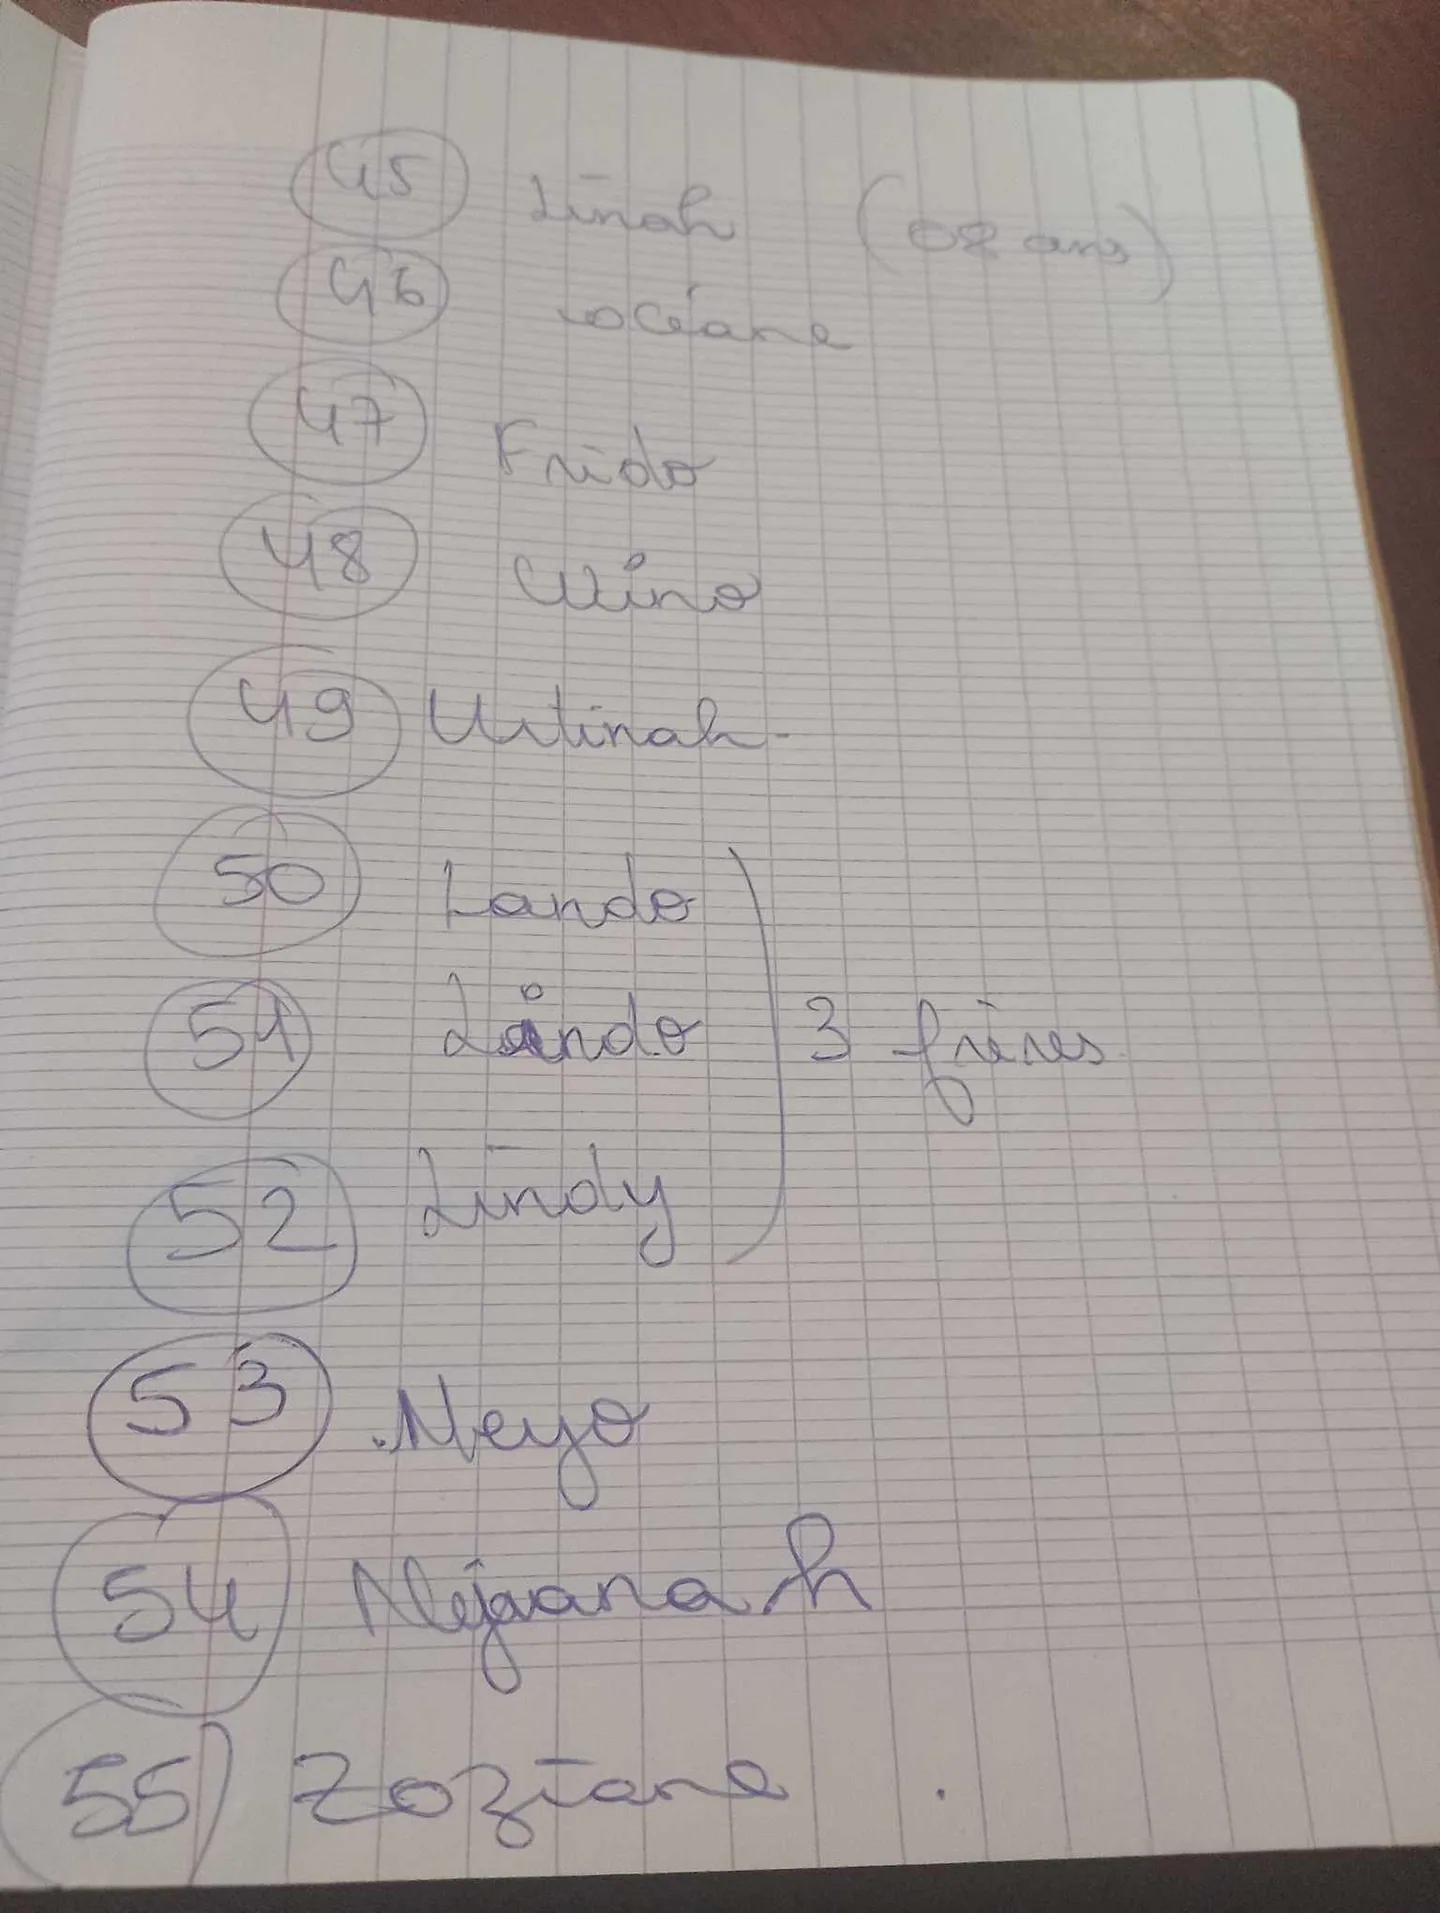 45 Linah (08 ans)
46 océane
47 Frido
48 Wino
49 Urtinah
50 Lando
51 Lindo 3 frères
52 Lindy
53 Neyo
54
55 Zoziane